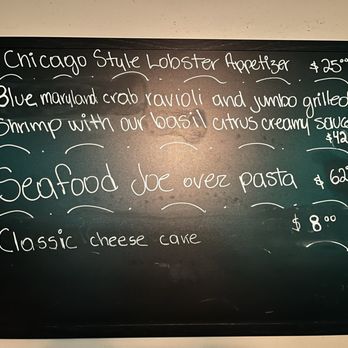 Chicago Style Lobster Appetizer $25⁰⁰
Blue maryland crab ravioli and jumbo grilled
Shrimp with our basil citrus creamy sauce
$42
Seafood Joe over pasta $62
Classic cheese cake $8⁰⁰